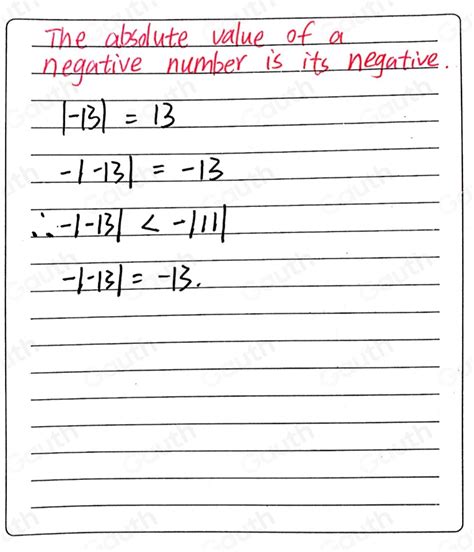 The absolute value of a
negative number is its negative.
|-13| = 13
-|-13| = -13
∴ -|-13| < -|11|
-|-13| = -13.